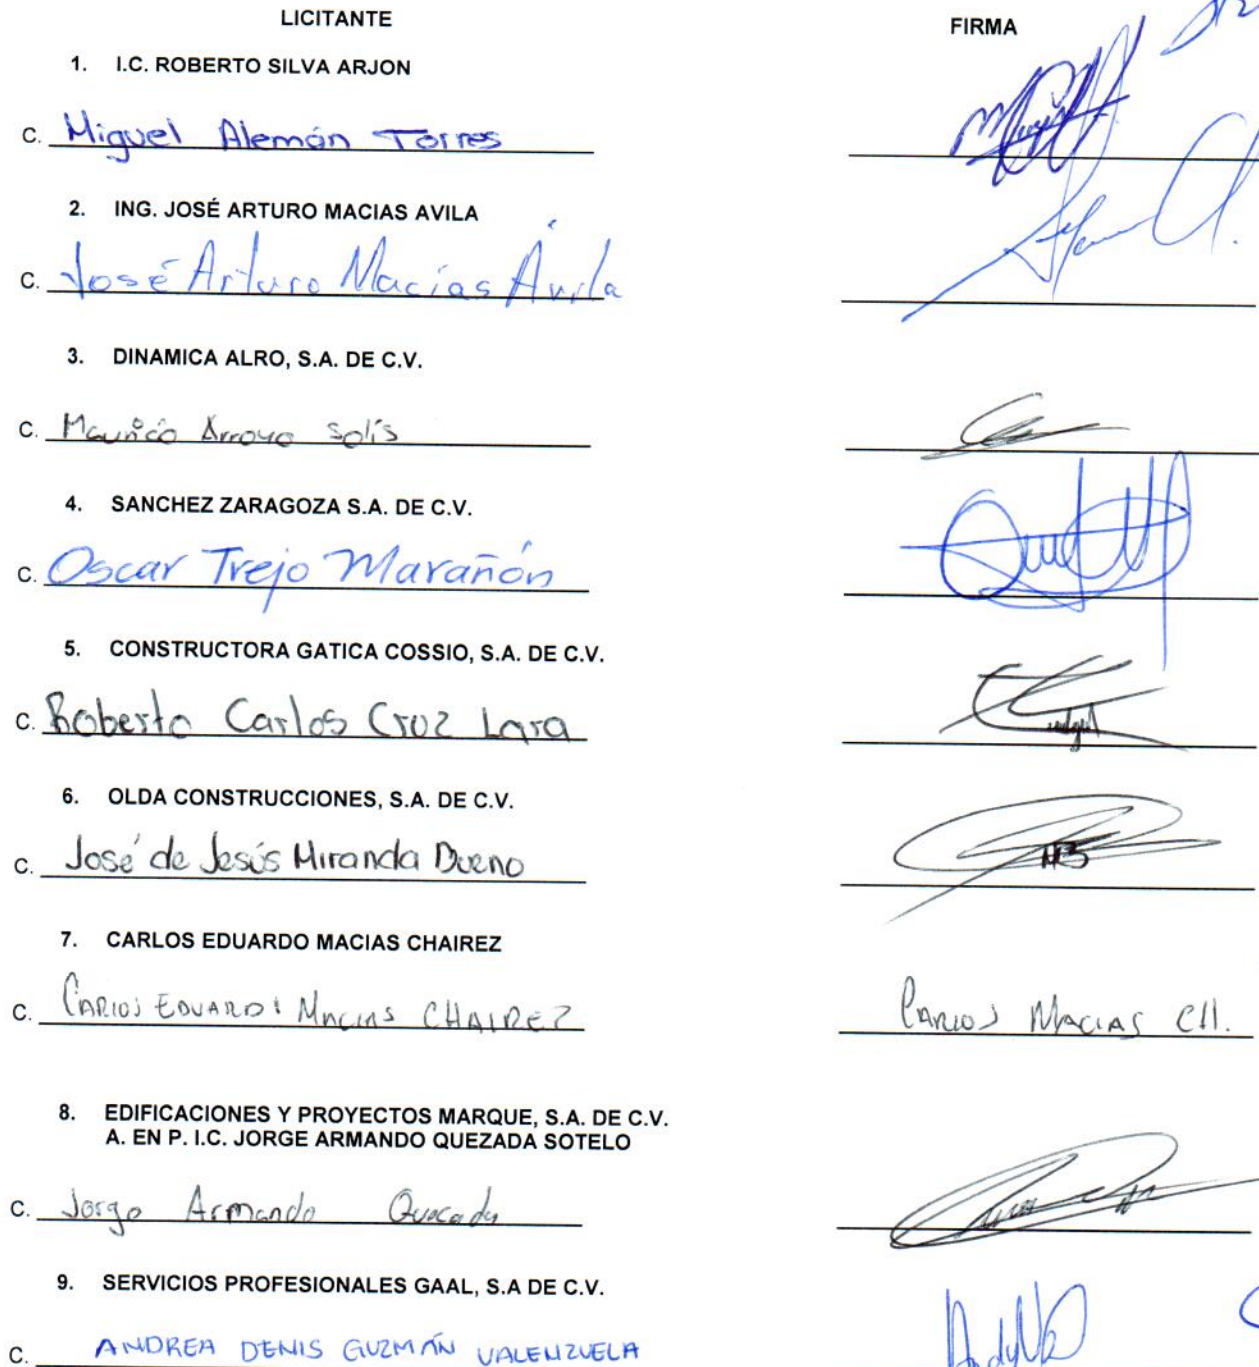 LICITANTE FIRMA
1. I.C. ROBERTO SILVA ARJON
C. Miguel Alemán Torres
2. ING. JOSÉ ARTURO MACIAS AVILA
C. José Arturo Macías Ávila
3. DINAMICA ALRO, S.A. DE C.V.
C. Mauricio Arroyo Solís
4. SANCHEZ ZARAGOZA S.A. DE C.V.
C. Oscar Trejo Marañón
5. CONSTRUCTORA GATICA COSSIO, S.A. DE C.V.
C. Roberto Carlos Cruz Lara
6. OLDA CONSTRUCCIONES, S.A. DE C.V.
C. José de Jesús Miranda Bueno
7. CARLOS EDUARDO MACIAS CHAIREZ
C. CARLOS EDUARDO MACIAS CHAIREZ CARLOS MACIAS CH.
8. EDIFICACIONES Y PROYECTOS MARQUE, S.A. DE C.V.
A. EN P. I.C. JORGE ARMANDO QUEZADA SOTELO
C. Jorge Armando Quezada
9. SERVICIOS PROFESIONALES GAAL, S.A DE C.V.
C. ANDREA DENIS GUZMÁN VALENZUELA